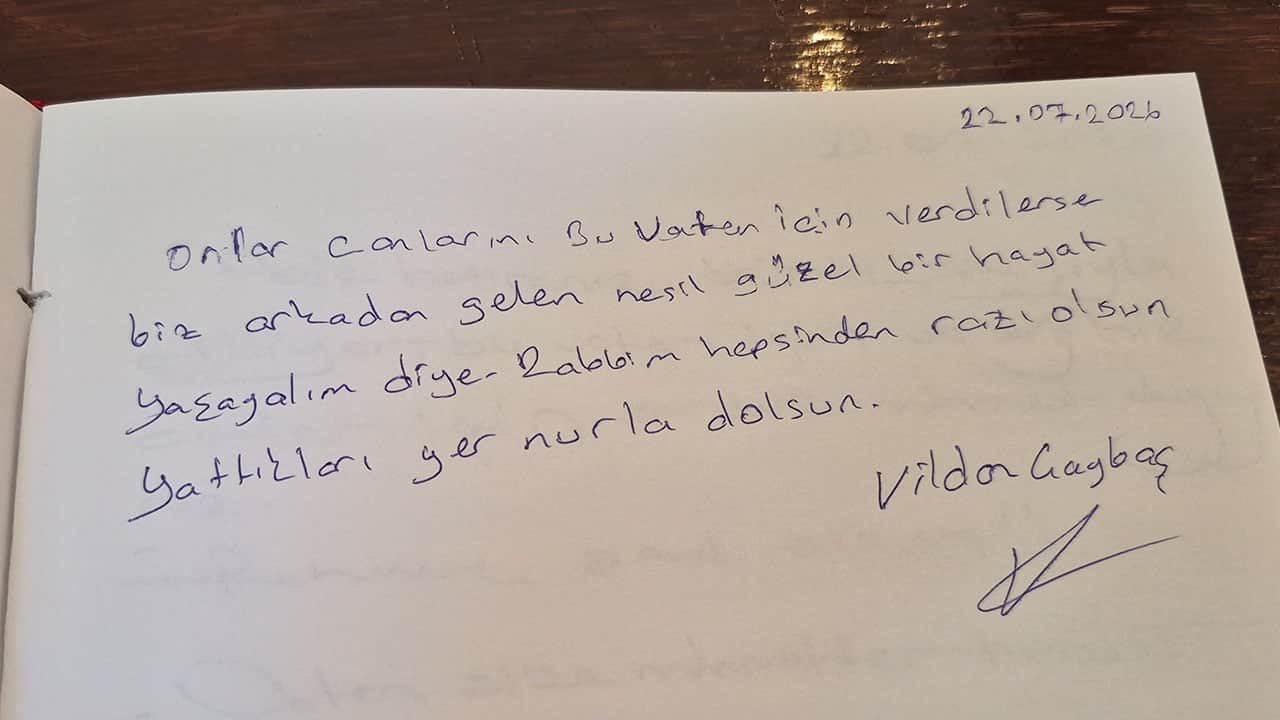 22.07.2026
Onlar canlarını Bu Vatan için verdilerse
biz arkadan gelen nesil güzel bir hayat
yaşayalım diye. Rabbim hepsinden razı olsun
yattıkları yer nurla dolsun.
Vildan Çaybaş